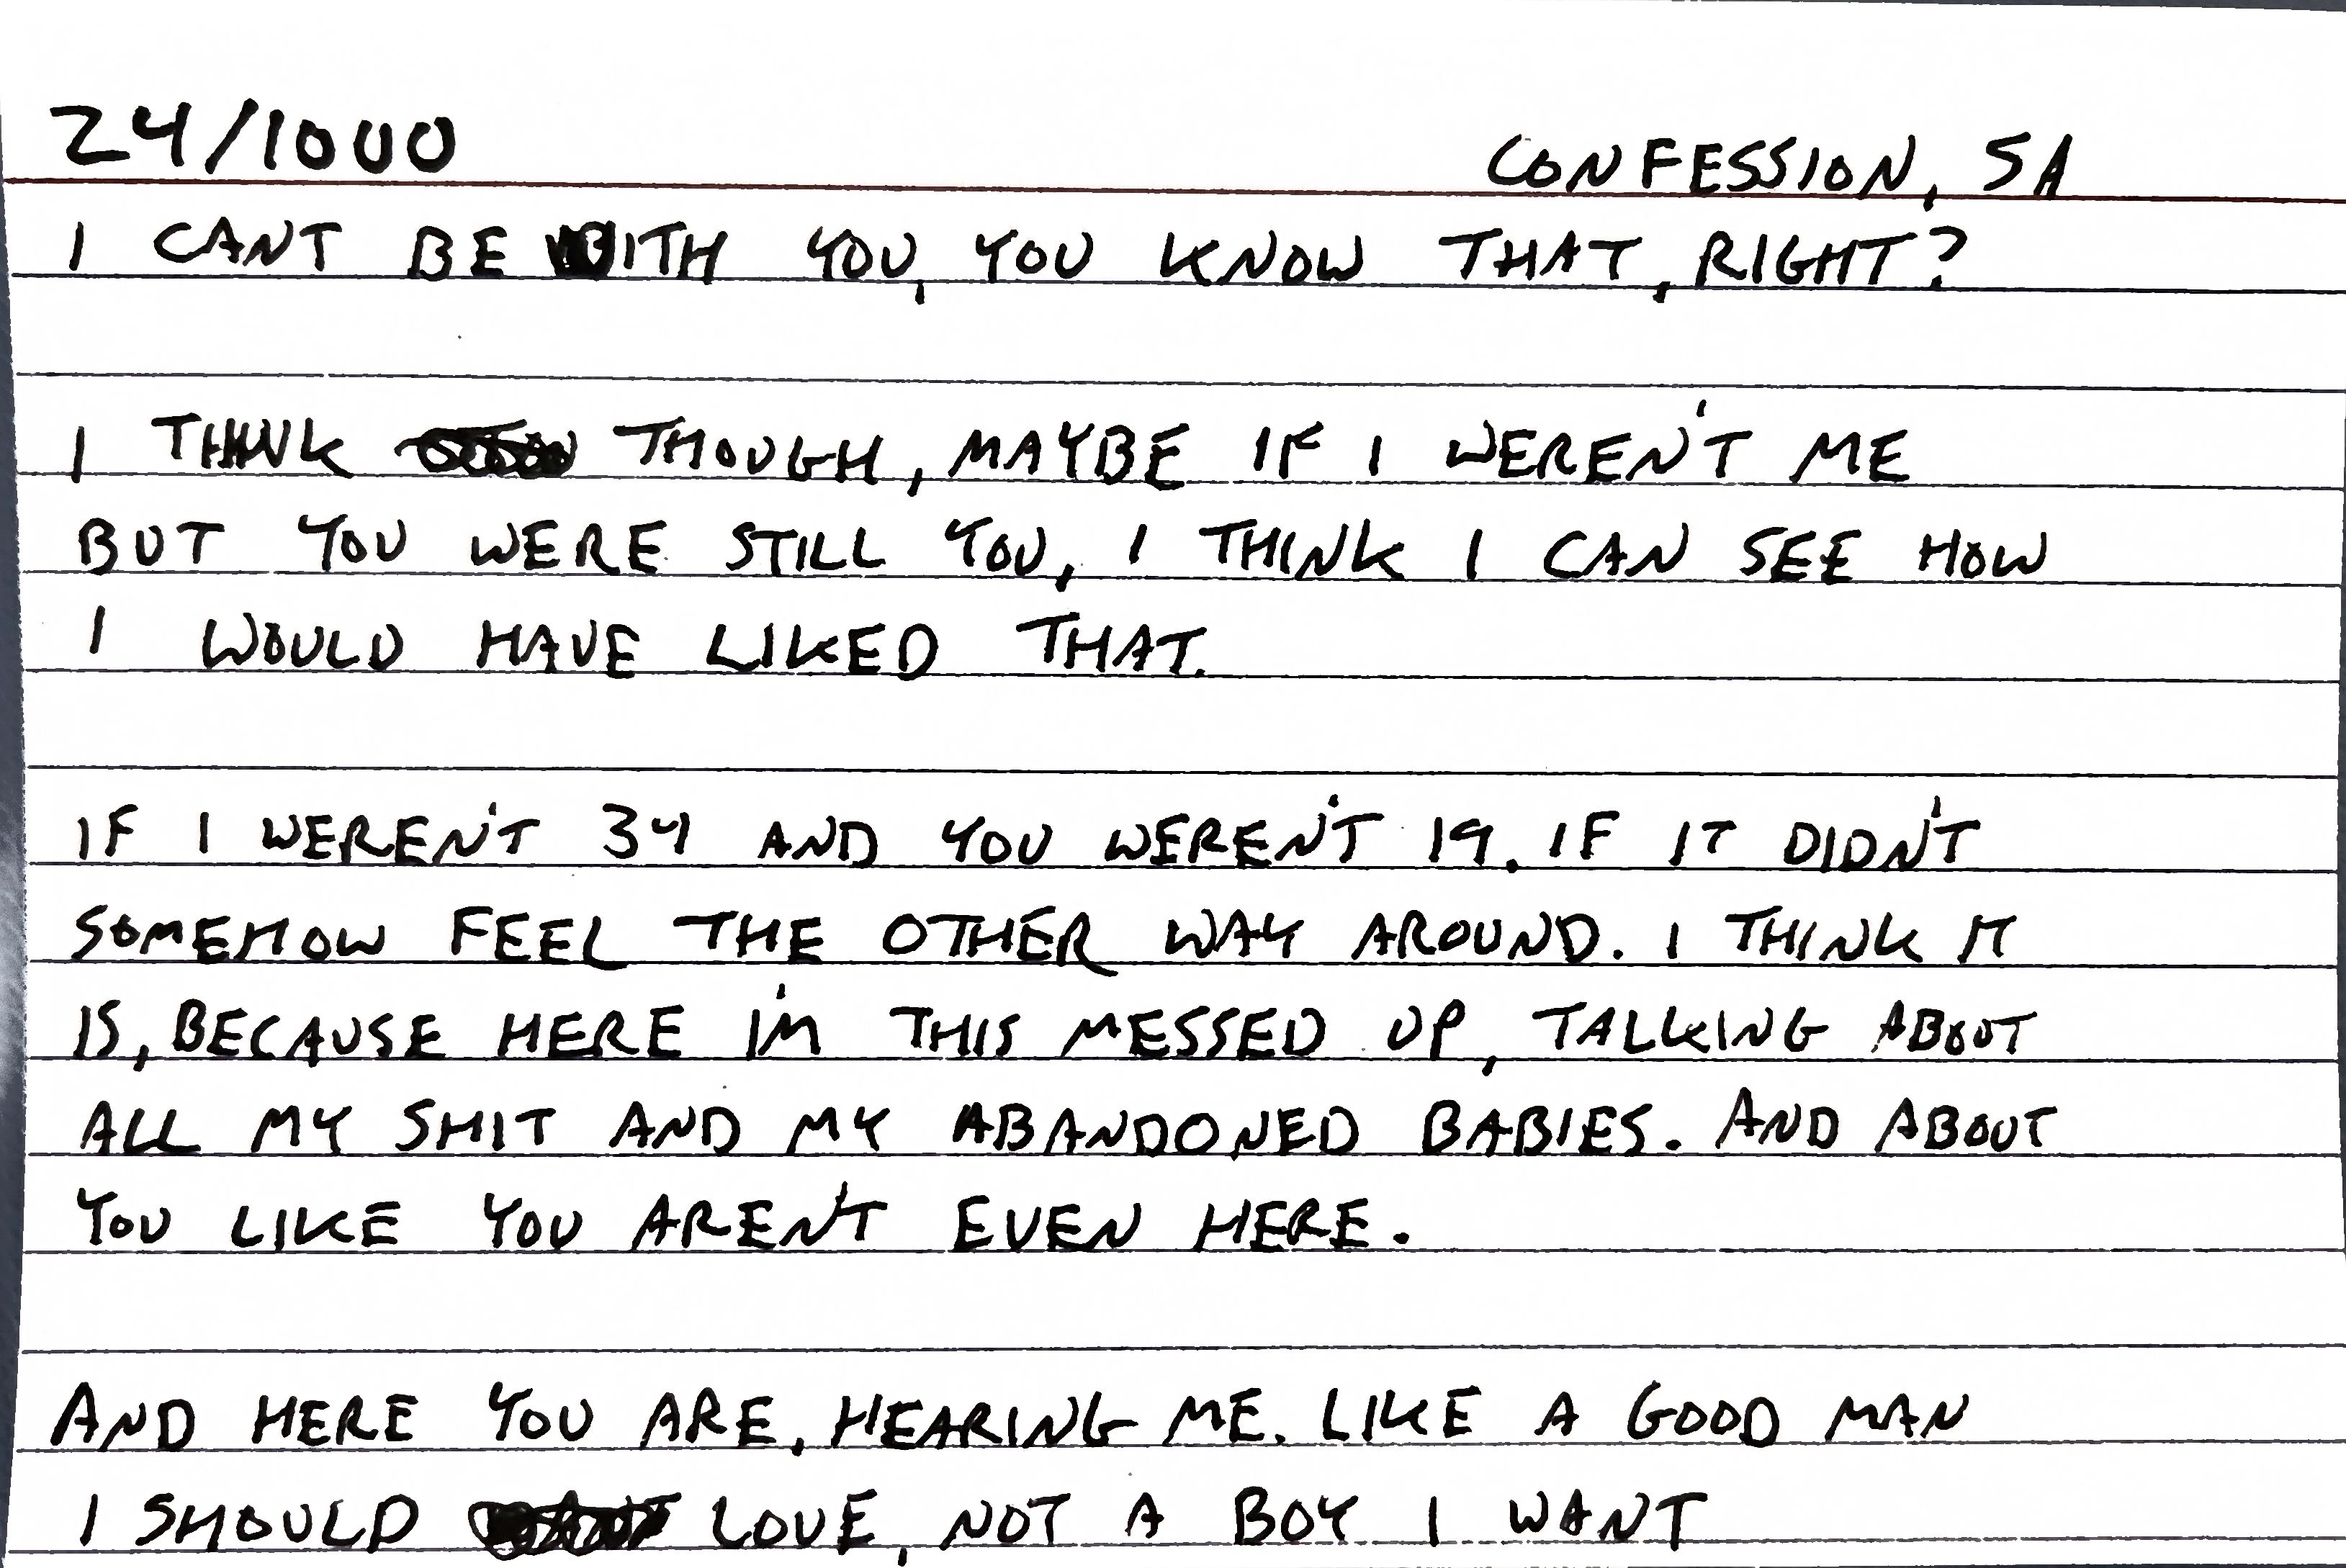 24/1000
CONFESSION, SA
I CANT BE WITH YOU, YOU KNOW THAT, RIGHT?
I THINK THOUGH, MAYBE IF I WEREN'T ME
BUT YOU WERE STILL YOU, I THINK I CAN SEE HOW
I WOULD HAVE LIKED THAT.
IF I WEREN'T 34 AND YOU WEREN'T 19. IF IT DIDN'T
SOMEHOW FEEL THE OTHER WAY AROUND. I THINK IT
IS, BECAUSE HERE I'M THIS MESSED UP, TALKING ABOUT
ALL MY SHIT AND MY ABANDONED BABIES. AND ABOUT
YOU LIKE YOU AREN'T EVEN HERE.
AND HERE YOU ARE, HEARING ME. LIKE A GOOD MAN
I SHOULD LOVE, NOT A BOY I WANT